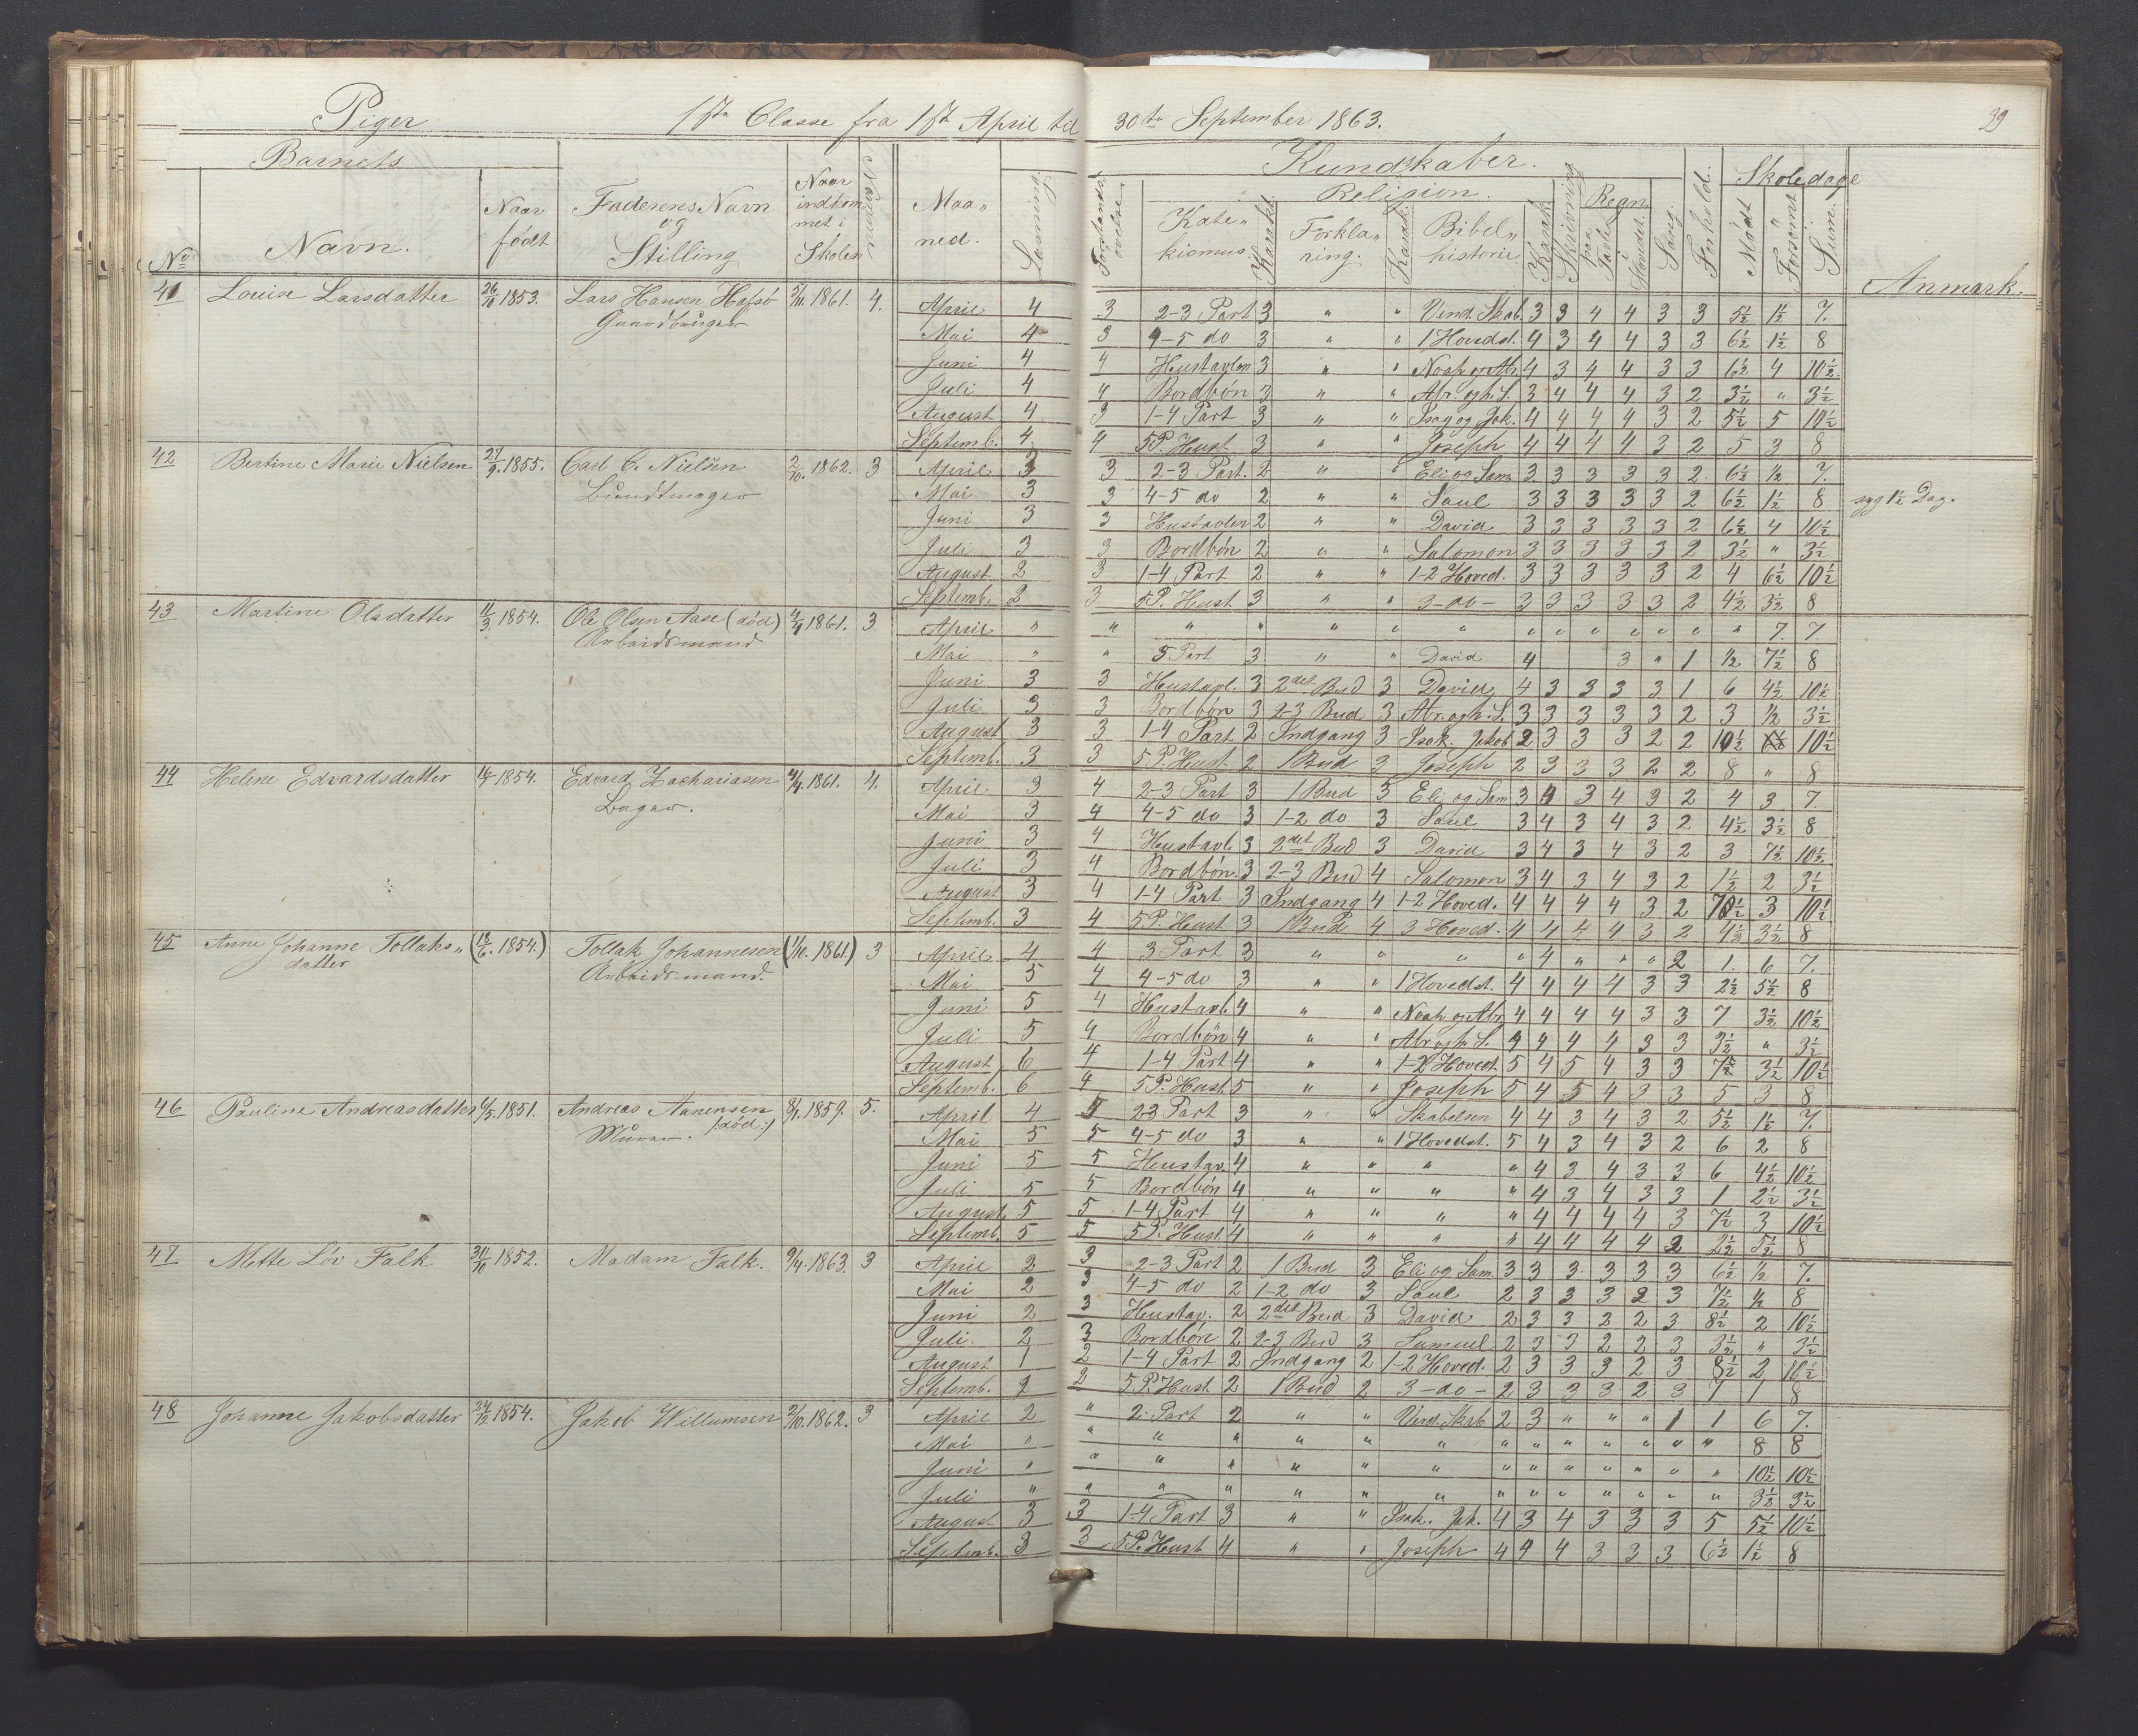 Piger 1ste Classe fra 1ste April til 30te September 1863. 39
Barnets
No Navn. Naar født Faderens Navn og Stilling Naar indkommet i Skolen Maaned. Læsning
Forstandsøvelse Kundskaber. Forhold. Skoledage Anmærk.
Religion. Skrivning Regn Sang.
Katekismus. Karakt. Forklaring. Karakt. Bibelhistorie Karak. paa Tavle i Hovedet. Mødt Forsømt Sum.
41 Louise Larsdatter 26/10 1853. Lars Hansen Hafsö 5/11. 1861. 4. April 4 3 2-3 Part 3 " " Verd. Skab. 3 3 4 4 3 3 5½ 1½ 7.
Gaardbruger Mai 4 3 4-5 do 3 " " 1 Hovdst. 4 3 4 4 3 3 6½ 1½ 8
Juni 4 4 Hustavlen 3 " " Noah og Abr. 4 3 4 4 3 3 6½ 4 10½
Juli 4 4 Bordbön 3 " " Abr. og h. S. 3 4 4 4 3 2 3½ " 3½
August 4 3 1-4 Part 3 " " Isag og Jak. 4 4 4 4 3 2 5½ 5 10½
Septemb. 4 4 5 P. Hust 3 " " Joseph 4 4 4 4 3 2 5 3 8
42 Bertine Marie Nielsen 27/9. 1855. Carl C. Nielsen 2/10. 1862. 3 April 3 3 2-3 Part. 2 " " Eli og Sam. 3 3 3 3 3 2 6½ ½ 7.
Bundtmager Mai 3 3 4-5 do 2 " " Saul 3 3 3 3 3 2 6½ 1½ 8 syg 1½ Dag.
Juni 3 3 Hustavlen 2 " " David 3 3 3 3 3 2 6½ 4 10½
Juli 3 3 Bordbön 2 " " Salomon 3 3 3 3 3 2 3½ " 3½
August 2 3 1-4 Part 2 " " 1-2 Hoved. 3 3 3 3 3 2 4 6½ 10½
Septemb. 2 3 5 P. Hust 3 " " 3-do- 3 3 3 3 3 2 4½ 3½ 8
43 Martine Olsdatter 11/3. 1854. Ole Olsen Aase (död) 4/4 1861. 3 April " " " " " " " " " " " " " " 7. 7.
Arbeidsmand Mai " " 5 Part 3 " " David 4 3 " 1 ½ 7½ 8
Juni 3 3 Hustavl. 3 2det Bud 3 David 4 3 3 3 3 1 6 4½ 10½
Juli 3 3 Bordbön 3 2-3 Bud 3 Abr. og h. S. 3 3 3 3 3 2 3 ½ 3½
August 3 3 1-4 Part 2 Indgang 3 Isak. Jakob 2 3 3 3 2 2 10½ 10½
Septemb. 3 3 5 P. Hust 2 1 Bud 3 Joseph 2 3 3 3 2 2 8 " 8
44 Helene Edvardsdatter 1854. Edvard Zachariasen 4/4. 1861. 4. April 3 4 2-3 Part 3 1 Bud 3 Eli og Sam 3 4 3 4 3 2 4 3 7.
Bager. Mai 3 4 4-5 do 3 1-2 do 3 Saul 3 4 3 4 3 2 4½ 3½ 8
Juni 3 4 Hustavl. 3 2det Bud 3 David 3 4 3 4 3 2 3 7½ 10½
Juli 3 4 Bordbön. 3 2-3 Bud 4 Salomon 3 4 3 4 3 2 1½ 2 3½
August 3 4 1-4 Part 3 Indgang 4 1-2 Hoved. 4 4 4 4 3 2 7½ 3 10½
Septemb. 3 4 5 P. Hust 3 1 Bud 4 3 Hoved. 4 4 4 4 3 2 4½ 3½ 8
45 Anne Johanne Tollaks„ (18/6. 1854.) Tollak Johannesen (1/10. 1861.) 3 April 4 4 3 Part 3 " " " " 4 " " " 2 1. 6 7.
datter Arbeidsmand. Mai 5 4 4-5 do 3 " " 1 Hovedst. 4 4 4 4 3 3 2½ 5½ 8
Juni 5 4 Hustavl. 4 " " Noah og Abr. 4 4 4 4 3 3 7 3½ 10½
Juli 5 4 Bordbön 4 " " Abr og h. S. 4 4 4 4 3 3 3½ " 3½
August 6 4 1-4 Part 4 " " 1-2 Hovedt. 5 4 5 4 3 3 7½ 3½ 10½
Septemb. 6 4 5 P. Hust. 5 " " Joseph 5 4 5 4 3 3 5 3 8
46 Pauline Andreasdatter 6/5. 1851. Andreas Aanensen 8/1. 1859. 5. April 4 5 2-3 Part 3 " " Skabelsen 4 4 3 4 3 2 5½ 1½ 7.
Murer. /:död:/ Mai 5 5 4-5 do 3 " " 1 Hovedst. 5 4 3 4 3 2 6 2 8
Juni 5 5 Hustav. 4 " " " " 4 3 4 3 3 6 4½ 10½
Juli 5 5 Bordbön 4 " " " " 4 3 4 3 3 1 2½ 3½
August. 5 5 1-4 Part 4 " " " " 4 4 4 4 3 7½ 3 10½
Septemb. 5 5 5 P. Hust. 4 " " " " 4 4 4 4 2 2½ 5½ 8
47 Mette Löv Falk 31/10 1852. Madam Falk. 9/4. 1863. 3 April 2 3 2-3 Part 2 1 Bud 3 Eli og Sam. 3 3 3 3 3 3 6½ ½ 7.
Mai 2 3 4-5 do 2 1-2 do 3 Saul 2 3 3 3 2 3 7½ ½ 8
Juni 2 3 Hustav. 2 2det Bud 3 David 2 3 3 2 2 3 8½ 2 10½
Juli 2 3 Bordbön 2 2-3 Bud 3 Samuel 2 3 3 2 2 3 3½ " 3½
August 1 2 1-4 Part 2 Indgang 2 1-2 Hoved. 2 3 3 3 2 3 8½ 2 10½
Septemb. 2 2 5 P. Hust 2 1 Bud 2 3-do- 2 3 3 3 2 3 7 1 8
48 Johanne Jakobsdatter 24/12 1854. Jakob Willumsen 2/10. 1862. 3 April 2 " 2. Part 2 " " Verd. Skab 2 3 " " " 1 1 6 7.
Mai " " " " " " " " " " " " " " 8 8
Juni " " " " " " " " " " " " " " 10½ 10½
Juli " " " " " " " " " " " " " " 3½ 3½
August 3 3 1-4 Part 3 " " Isak. Jak. 4 3 4 3 3 3 5 5½ 10½
Septemb. 3 3 5 P. Hust 4 " " Joseph 4 4 4 3 3 3 6½ 1½ 8